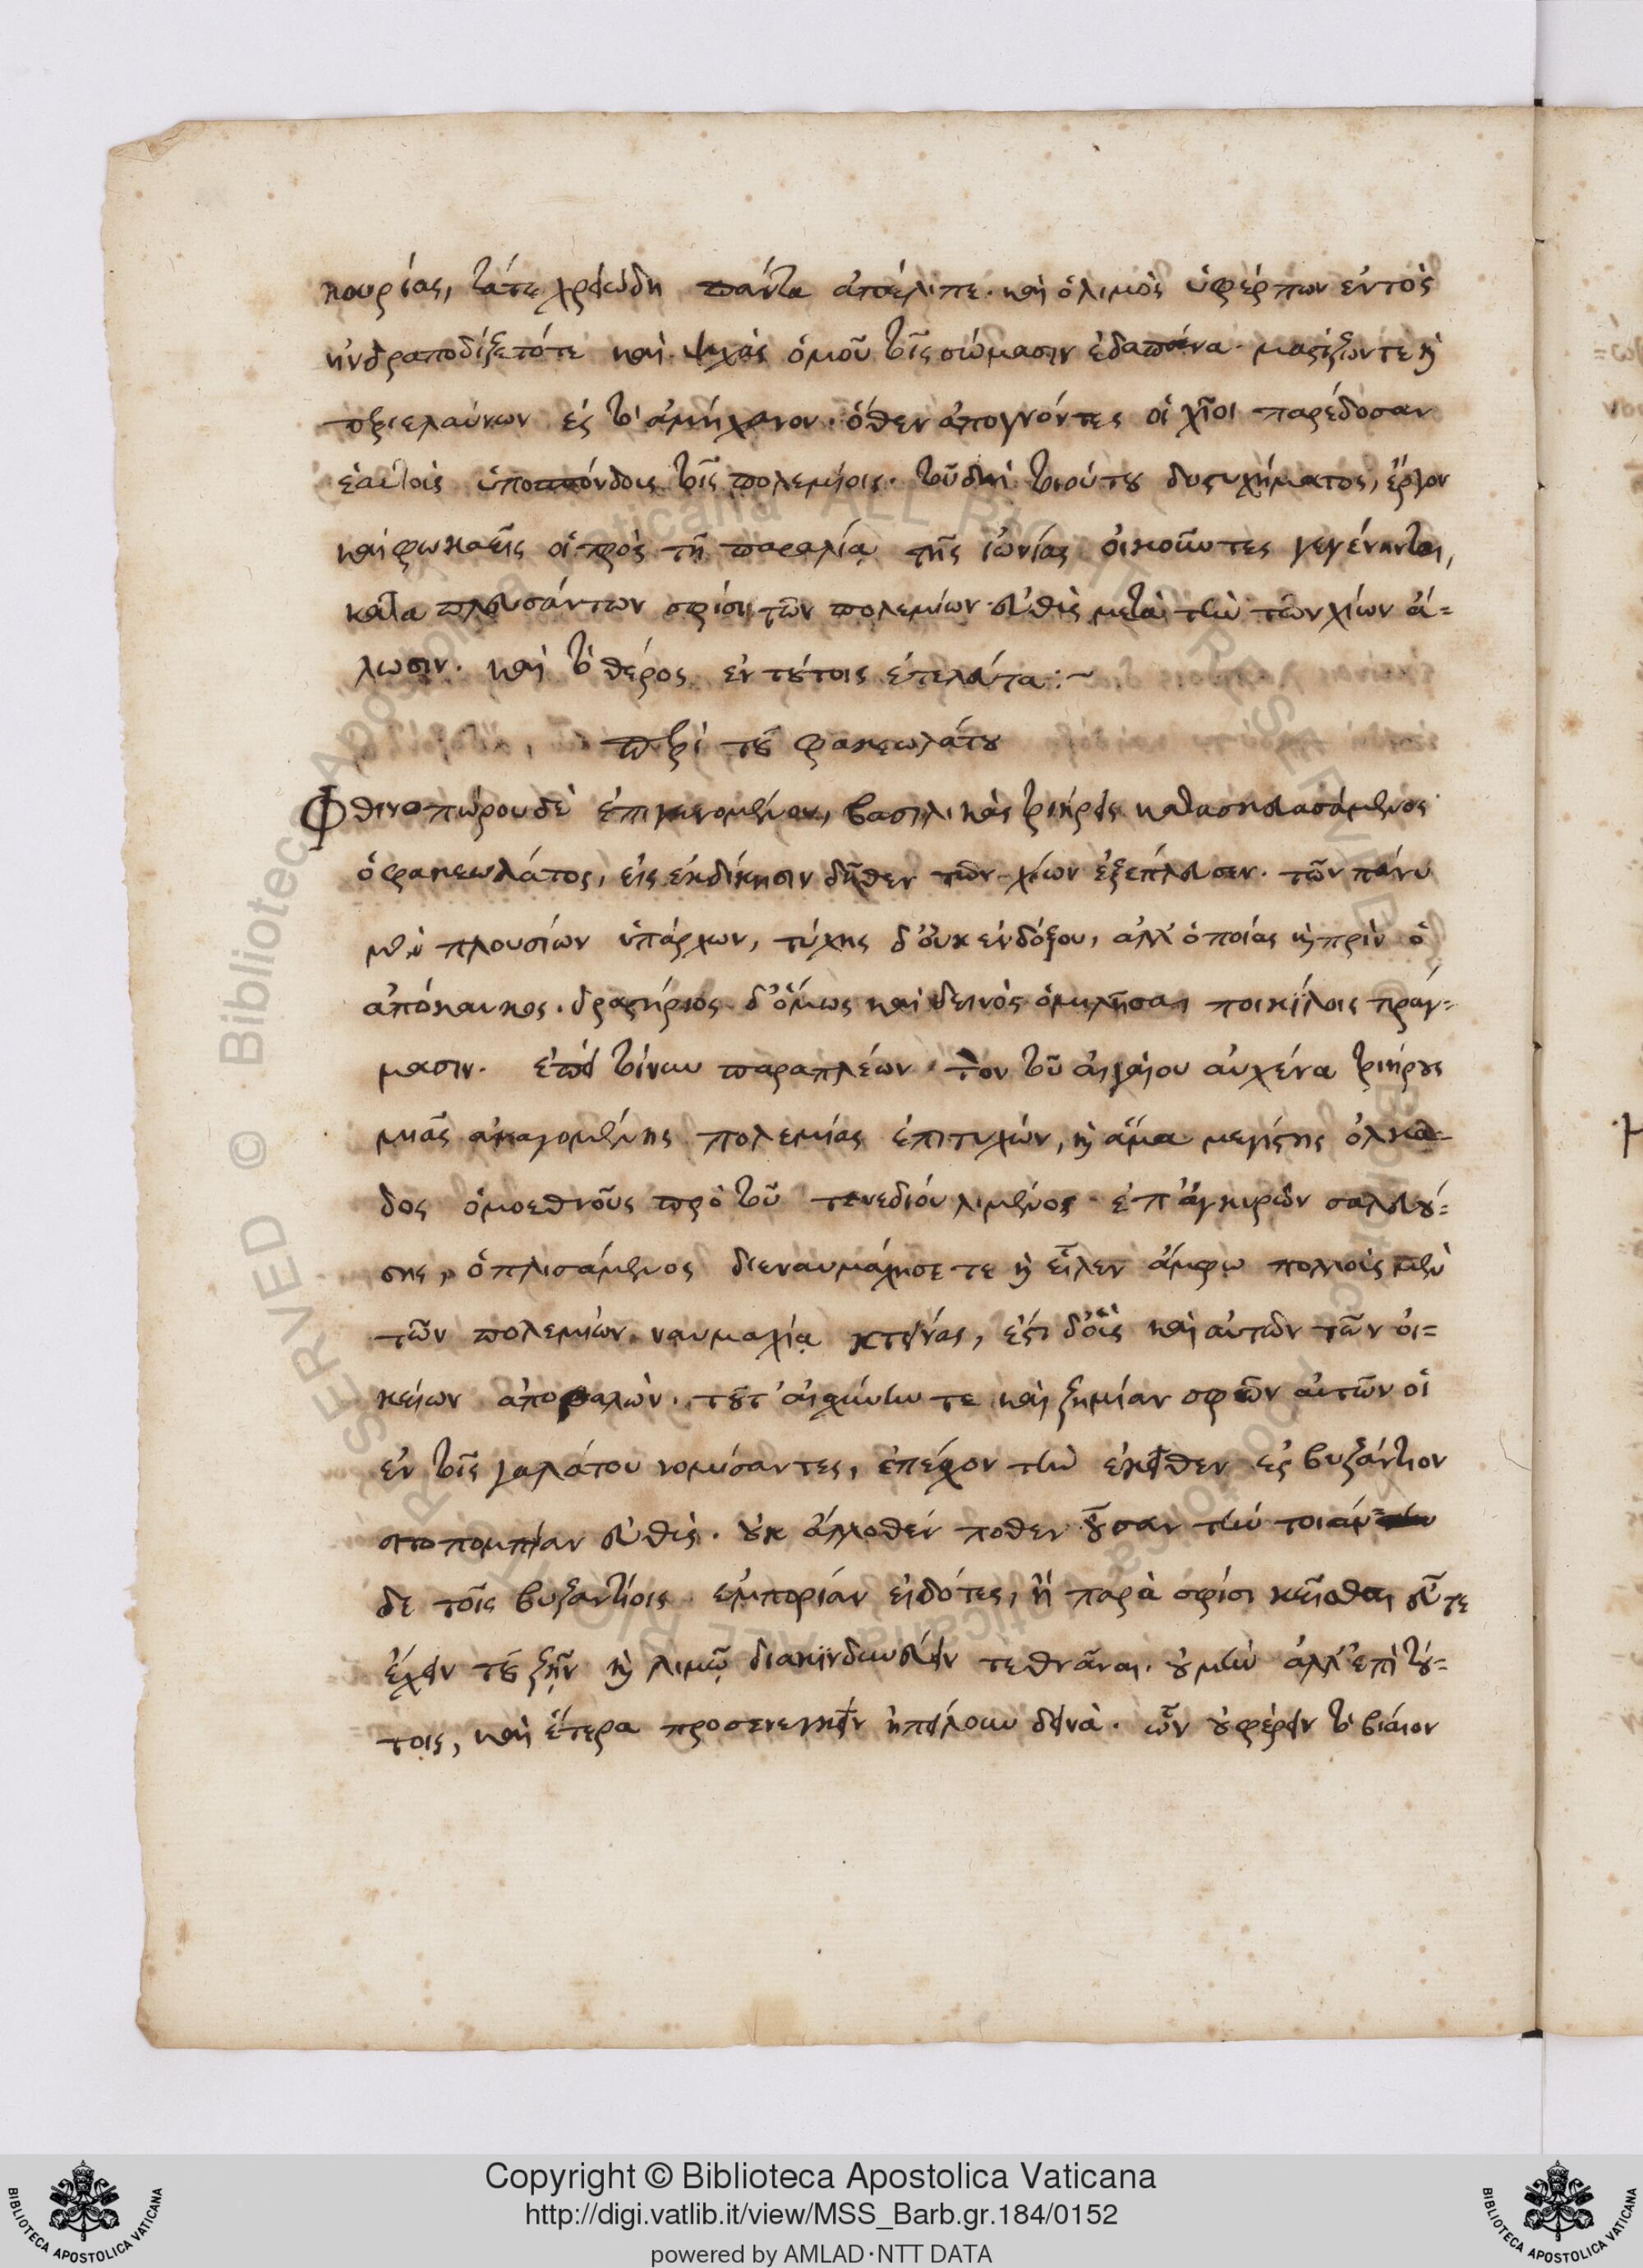 κουρίας, τά τε χρειώδη πάντα ἀπέλιπε. καὶ ὁ λιμὸς ὑφέρπων ἐντὸς
ἠνδραποδίζετό τε καὶ ψυχὰς ὁμοῦ τοῖς σώμασιν ἐδαπάνα. μαστίζων τε καὶ
περιελαύνων ἐς τὸ ἀμήχανον. ὅθεν ἀπογνόντες οἱ χῖοι παρέδοσαν
ἑαυτοὺς ὑποσπόνδους τοῖς πολεμίοις. τοῦ δὴ τοιούτου δυστυχήματος, ἔργον
καὶ φωκαεῖς οἱ πρὸς τῇ παραλίᾳ τῆς ἰωνίας οἰκοῦντες γεγένηνται,
καταπλευσάντων σφίσι τῶν πολεμίων εὐθὺς μετὰ τὴν τῶν χίων ἅ=
λωσιν. καὶ τὸ θέρος ἐν τούτοις ἐτελεύτα:~
περὶ τοῦ φακεωλάτου
Φθινοπώρου δὲ ἐπιγενομένου, βασιλικὰς τριήρεις κατασκευασάμενος
ὁ φακεωλάτος, εἰς ἐκδίκησιν δῆθεν τῶν χίων ἐξέπλευσεν. τῶν πάνυ
μὲν πλουσίων ὑπάρχων, τύχης δ' οὐκ ἐνδόξου, ἀλλ' ὁποίας καὶ πρὶν ὁ
ἀπόκαυκος. δραστήριος δ' ὅμως καὶ δεινὸς ὁμιλῆσαι ποικίλοις πράγ=
μασιν. ἐπεὶ τοίνυν παραπλέων τὸν τοῦ αἰγαίου αὐχένα τριήρους
μιᾶς ἀναγομένης πολεμίας ἐπιτυχών, καὶ ἅμα μεγίστης ὁλκά=
δος ὁμοεθνοῦς πρὸ τοῦ τενεδίου λιμένος ἐπ' ἀγκυρῶν σαλευού=
σης, ὁπλισάμενος διεναυμάχησέ τε καὶ εἷλεν ἄμφω πολλοὺς μὲν
τῶν πολεμίων ναυμαχίᾳ κτείνας, ἔστι δ' οὓς καὶ αὐτῶν τῶν οἰ=
κείων ἀποβαλών. τοῦτ' αἰσχύνην τε καὶ ζημίαν σφῶν αὐτῶν οἱ
ἐν τοῖς γαλάτου νομίσαντες, ἐπέσχον τὴν ἐκεῖθεν ἐς βυζάντιον
σιτοπομπίαν εὐθύς. οὐκ ἄλλοθέν ποθεν οὖσαν τὴν τοιάν=
δε τοῖς βυζαντίοις ἐμπορίαν εἰδότες, ἢ παρὰ σφίσι κεῖσθαι εὖ τε
ἔχειν τοῦ ζῆν καὶ λιμῷ διακινδυνεύειν τεθνᾶναι. οὐ μὴν ἀλλ' ἐπὶ τού=
τοις, καὶ ἕτερα προσενεγκεῖν ἠπείλουν δεινά. ὧν οὐ φέρειν τὸ βίαιον
Copyright © Biblioteca Apostolica Vaticana
http://digi.vatlib.it/view/MSS_Barb.gr.184/0152
powered by AMLAD·NTT DATA